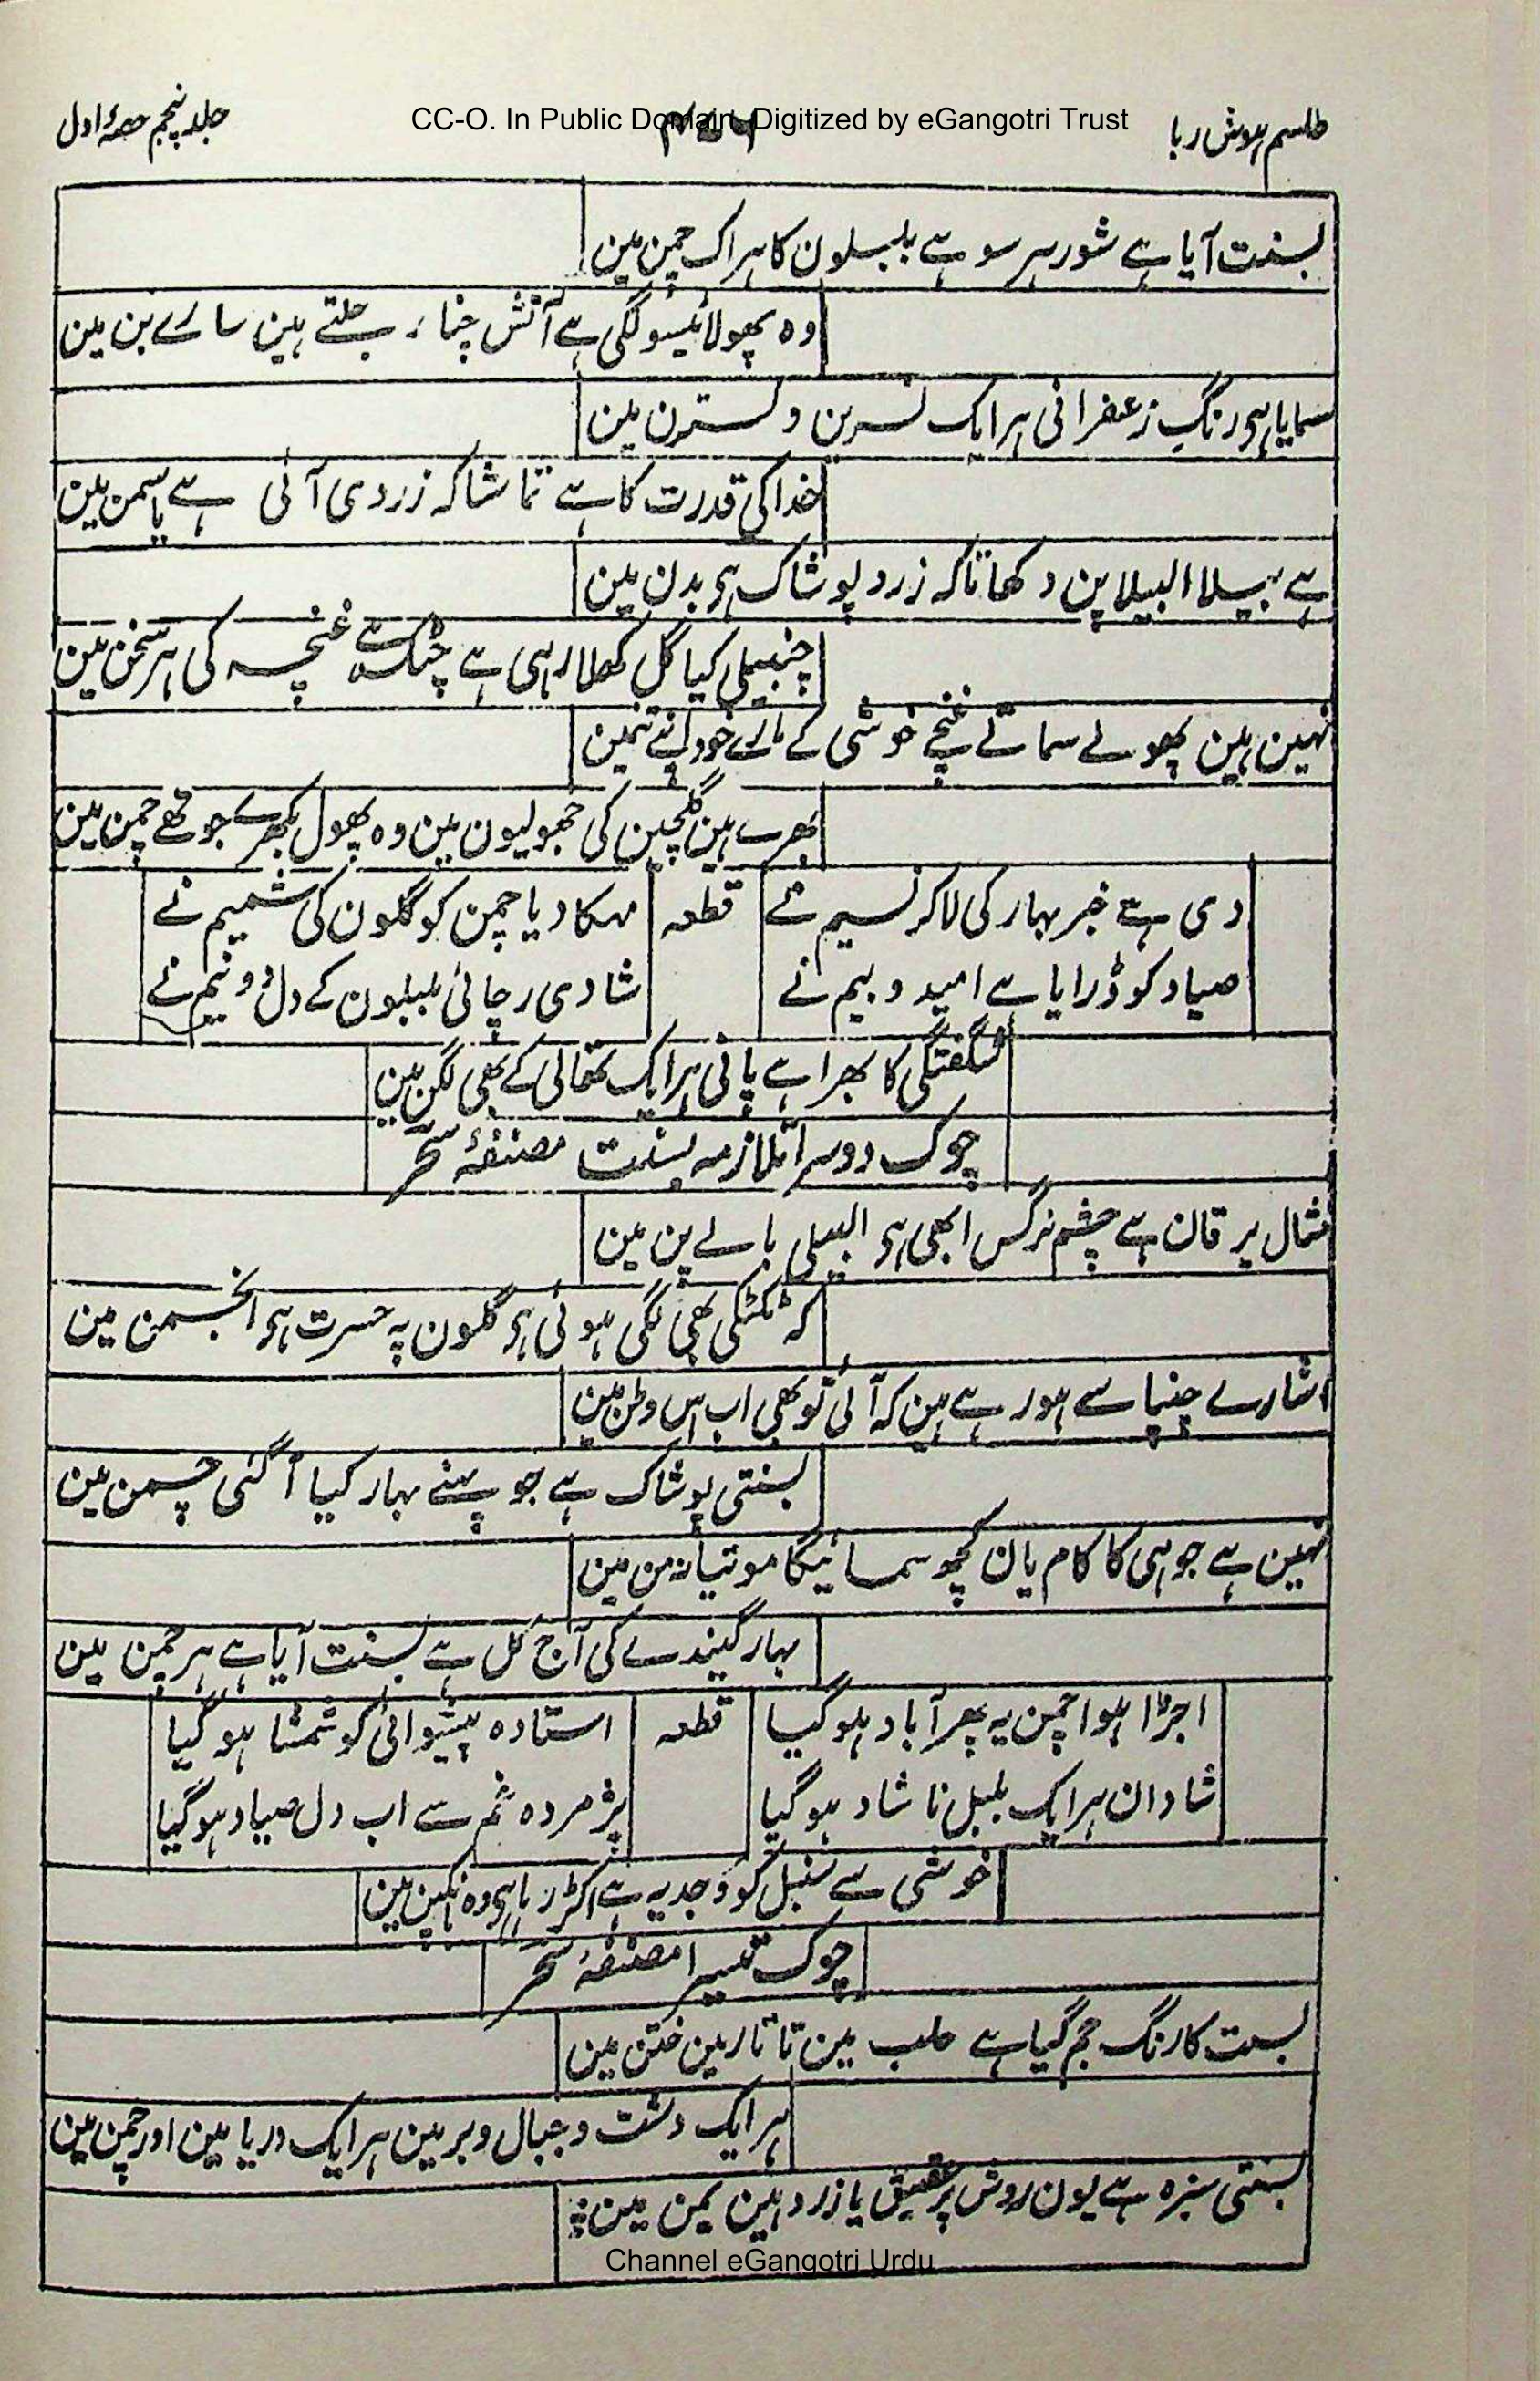 طلسم ہوش ربا
CC-O. In Public Domain. Digitized by eGangotri Trust
جلد پنجم حصۂ اول
بسنت آیا ہے شور ہر سو ہے بلبلون کا ہر اک چمن مین
وہ پھولا ٹیسو لگی ہے آتش چنار جلتے ہین سارے بن مین
سمایا ہو رنگِ زعفرانی ہر ایک نسرین و نسترن مین
خدا کی قدرت کا ہے تماشا کہ زردی آئی ہے یاسمن مین
ہے بیلا البیلا پن دکھاتا کہ زرد پوشاک ہو بدن مین
چنبیلی کیا گل کھلا رہی ہے چٹک ہے غنچہ کی ہر سخن مین
نہین ہین پھولے سماتے غنچے خوشی کے مارے خود اپنے تنمین
بھرے ہین گلچین کی جھولیون مین وہ پھول بکھرے جو تھے چمن مین
دی ہے خبر بہار کی لا کر نسیم نے
قطعہ
مہکا دیا چمن کو گلون کی شمیم نے
صیاد کو ڈرایا ہے امید و بیم نے
شادی رچائی بلبلون کے دل دو نیم نے
شگفتگی کا بھرا ہے پانی ہر ایک تھالی کے بھی لگن مین
چوک دوسرا تلازمہ بسنت مصنفۂ سحر
مثال یرقان ہے چشم نرگس ابھی ہو البیلی بالے پن مین
کہ ٹکٹکی بھی لگی ہوئی ہو گلون پہ حسرت ہو انجمن مین
اشارے چنپا سے ہو رہے ہین کہ آئی تو بھی اب اس وطن مین
بسنتی پوشاک ہے جو پہنے بہار کیا آ گئی چمن مین
نہین ہے جوہی کا کام یان کچھ سمائیگا موتیا نہ من مین
بہار گیندے کی آج کل ہے بسنت آیا ہے ہر چمن مین
اجڑا ہوا چمن یہ پھر آباد ہو گیا
قطعہ
استادہ پیشوائی کو شمشا ہو گیا
شادان ہر ایک بلبل ناشاد ہو گیا
پژمردہ غم سے اب دل صیاد ہو گیا
خوشی سے سنبل کو وجد یہ ہے اکڑ رہا ہو وہ بانکپن مین
چوک تیسرا مصنفۂ سحر
بسنت کا رنگ جم گیا ہے حلب مین تاتار مین ختن مین
ہر ایک دشت و جبال و بر مین ہر ایک دریا مین اور چمن مین
بسنتی سبزہ ہے یون روش پر عقیق یا زرد ہین یمن مین
Channel eGangotri Urdu